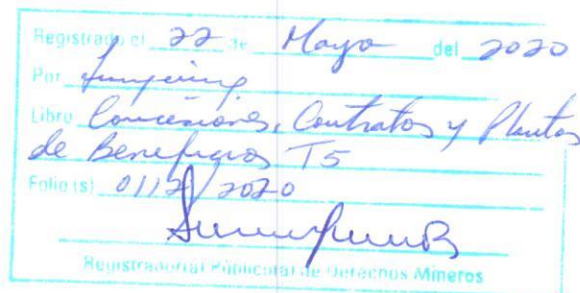 Registrado el 22 de Mayo del 2020
Por
Libro Concesiones, Contratos y Plantas
de Beneficios T5
Folio(s) 0112/2020
Registrador(a) Público(a) de Derechos Mineros